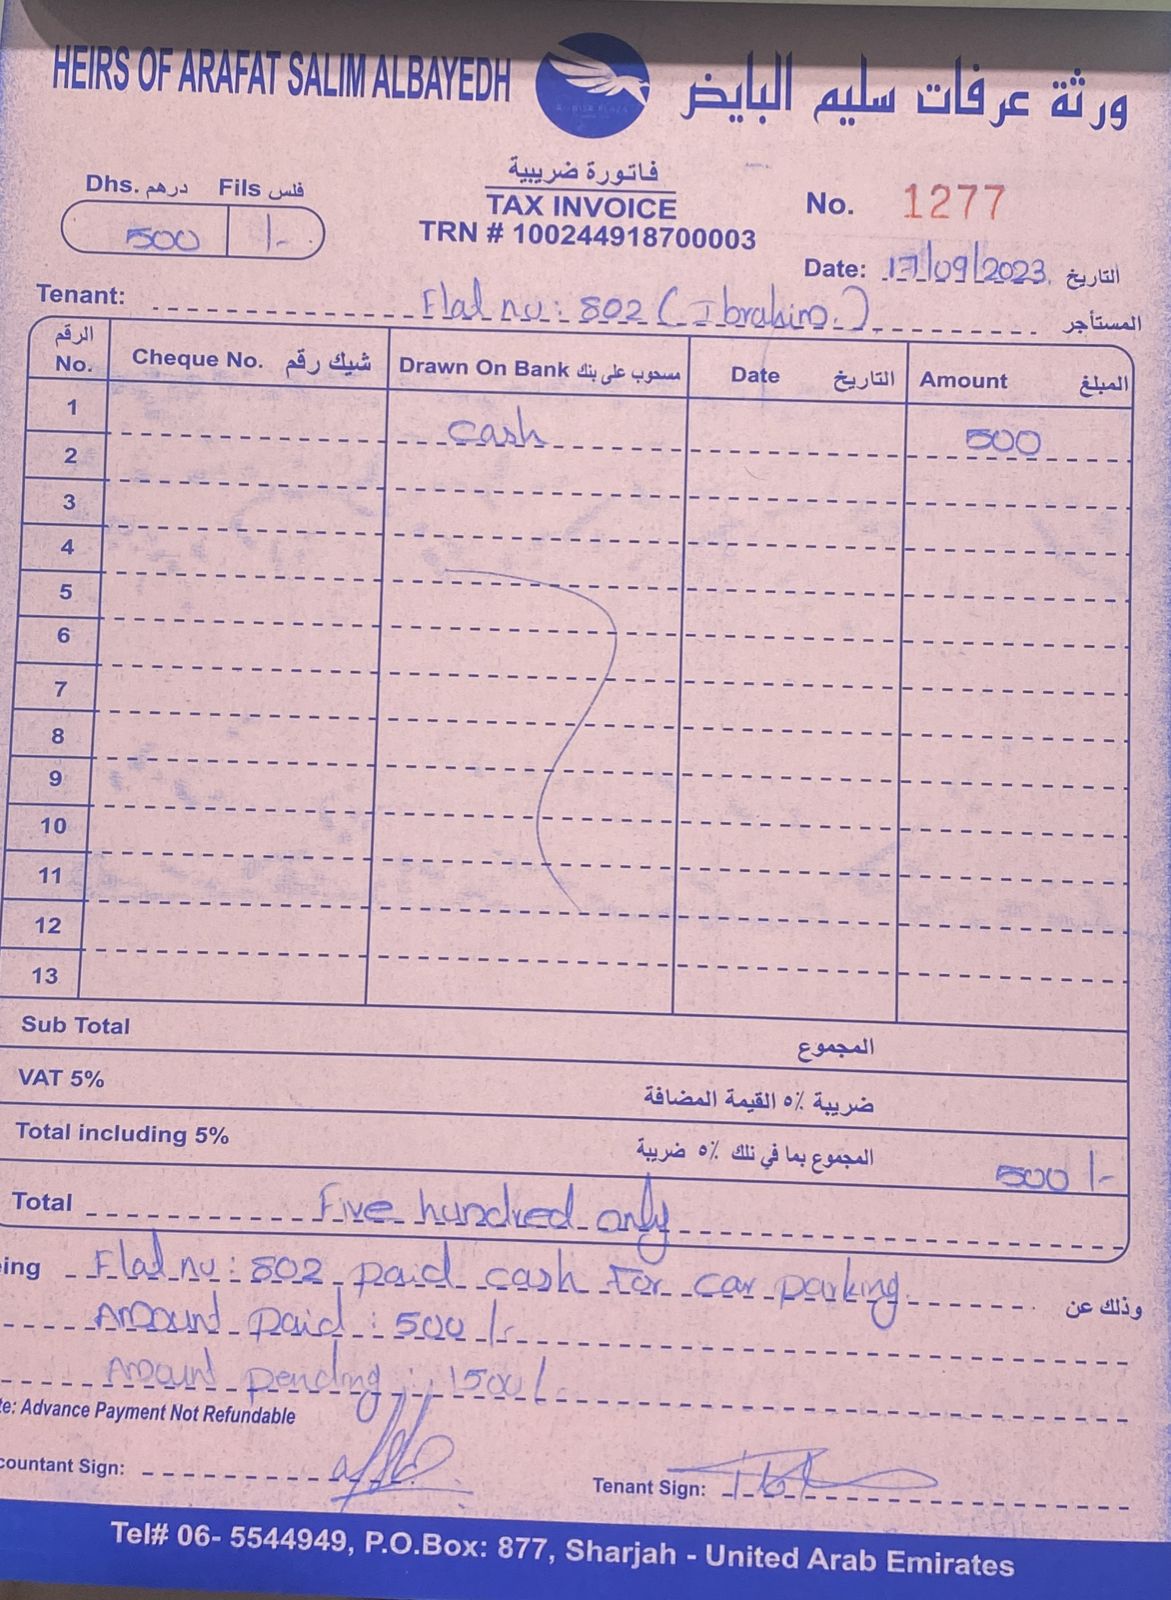 HEIRS OF ARAFAT SALIM ALBAYEDH ورثة عرفات سليم البايض
فاتورة ضريبية
TAX INVOICE
TRN # 100244918700003
Dhs. درهم Fils فلس
500 /-
No. 1277
Date: 17/09/2023 التاريخ
Tenant: Flat no: 802 (Ibrahim.) المستأجر
الرقم No. Cheque No. شيك رقم Drawn On Bank مسحوب على بنك Date التاريخ Amount المبلغ
1 cash 500
2
3
4
5
6
7
8
9
10
11
12
13
Sub Total المجموع
VAT 5% ضريبة ٥٪ القيمة المضافة
Total including 5% المجموع بما في ذلك ٥٪ ضريبة 500 /-
Total Five hundred only
ing Flat no: 802 paid cash for car parking. وذلك عن
Amount paid: 500 /-
Amount pending: 1500/-
te: Advance Payment Not Refundable
countant Sign:
Tenant Sign:
Tel# 06- 5544949, P.O.Box: 877, Sharjah - United Arab Emirates